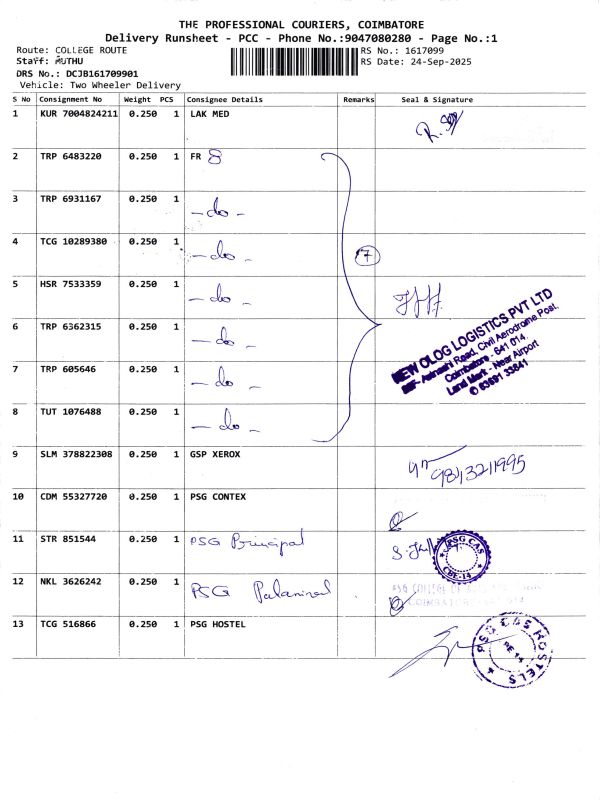 THE PROFESSIONAL COURIERS, COIMBATORE
Delivery Runsheet - PCC - Phone No.:9047080280 - Page No.:1
Route: COLLEGE ROUTE RS No.: 1617099
Staff: MUTHU RS Date: 24-Sep-2025
DRS No.: DCJB161709901
Vehicle: Two Wheeler Delivery
S No Consignment No Weight PCS Consignee Details Remarks Seal & Signature
1 KUR 7004824211 0.250 1 LAK MED
2 TRP 6483220 0.250 1 FR 8
3 TRP 6931167 0.250 1 - do -
4 TCG 10289380 0.250 1 - do - 7
5 HSR 7533359 0.250 1 - do -
NEW OLOG LOGISTICS PVT LTD
Avinashi Road, Civil Aerodrome Post,
Coimbatore - 641 014.
Land Mark - Near Airport
63691 33841
6 TRP 6362315 0.250 1 - do -
7 TRP 605646 0.250 1 - do -
8 TUT 1076488 0.250 1 - do -
9 SLM 378822308 0.250 1 GSP XEROX 9843211995
10 CDM 55327720 0.250 1 PSG CONTEX
11 STR 851544 0.250 1 PSG Principal
PSG CAS
CBE-14
12 NKL 3626242 0.250 1 PSG Palanisal
PSG COLLEGE OF
COIMBATORE
13 TCG 516866 0.250 1 PSG HOSTEL
PSG CAS HOSTELS